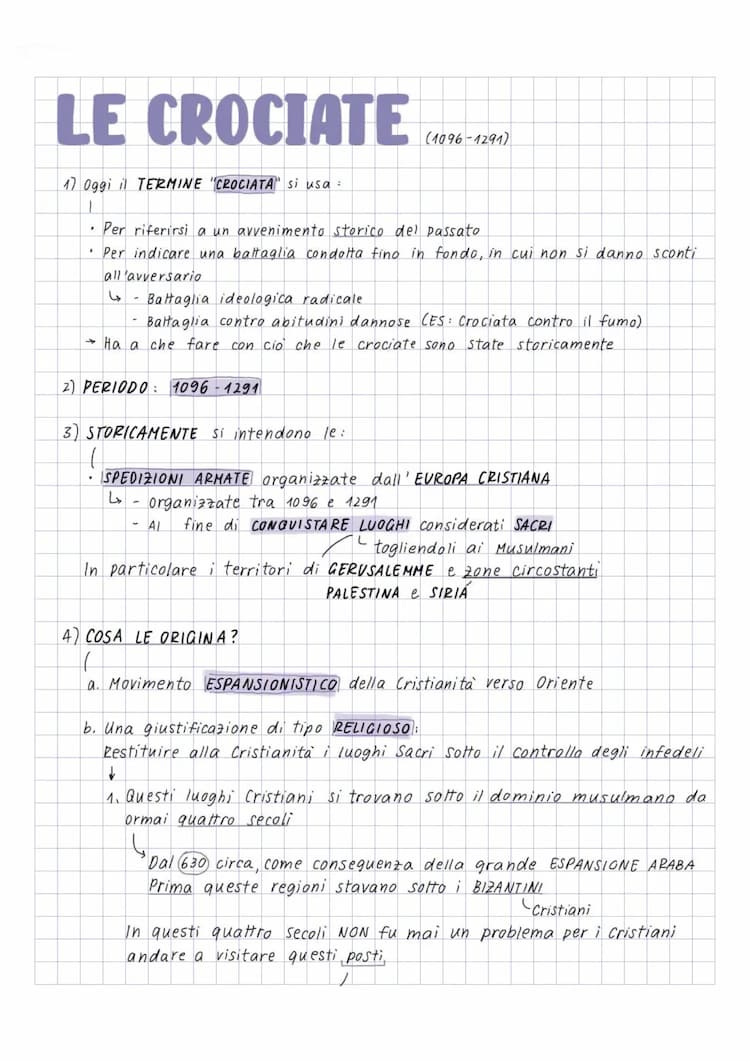 LE CROCIATE (1096-1291)
1) Oggi il TERMINE "CROCIATA" si usa :
• Per riferirsi a un avvenimento storico del passato
• Per indicare una battaglia condotta fino in fondo, in cui non si danno sconti
all'avversario
↳ - Battaglia ideologica radicale
- Battaglia contro abitudini dannose (ES: Crociata contro il fumo)
→ Ha a che fare con ciò che le crociate sono state storicamente
2) PERIODO : 1096 - 1291
3) STORICAMENTE si intendono le :
• SPEDIZIONI ARMATE organizzate dall' EUROPA CRISTIANA
↳ - organizzate tra 1096 e 1291
- Al fine di CONQUISTARE LUOGHI considerati SACRI
togliendoli ai Musulmani
In particolare i territori di GERUSALEMME e zone circostanti
PALESTINA e SIRIA
4) COSA LE ORIGINA?
a. Movimento ESPANSIONISTICO della Cristianità verso Oriente
b. Una giustificazione di tipo RELIGIOSO :
Restituire alla Cristianità i luoghi Sacri sotto il controllo degli infedeli
↓
1. Questi luoghi Cristiani si trovano sotto il dominio musulmano da
ormai quattro secoli
Dal 630 circa, come conseguenza della grande ESPANSIONE ARABA
Prima queste regioni stavano sotto i BIZANTINI
Cristiani
In questi quattro secoli NON fu mai un problema per i Cristiani
andare a visitare questi posti